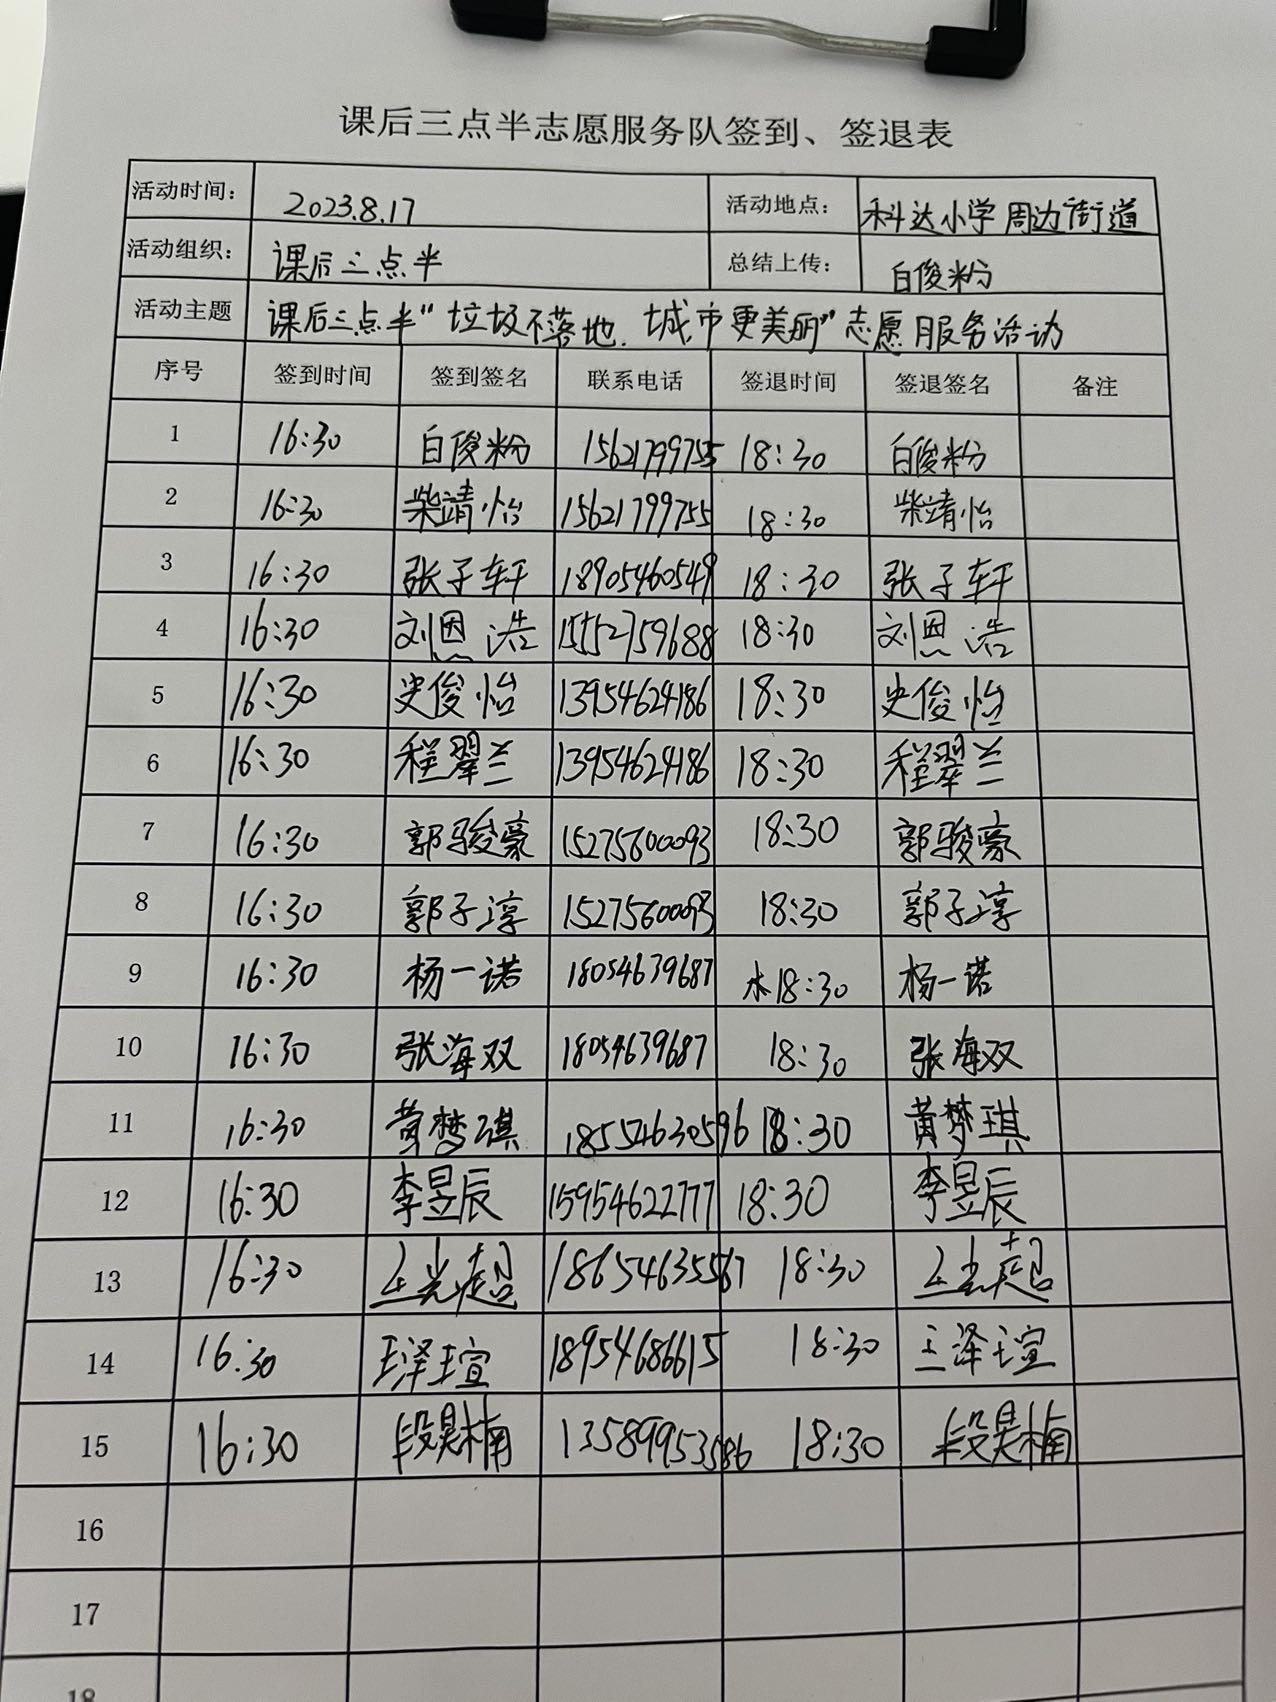 课后三点半志愿服务队签到、签退表
活动时间: 2023.8.17 活动地点: 科达小学周边街道
活动组织: 课后三点半 总结上传: 白俊粉
活动主题 课后三点半“垃圾不落地.城市更美丽”志愿服务活动
序号 签到时间 签到签名 联系电话 签退时间 签退签名 备注
1 16:30 白俊粉 15621799755 18:30 白俊粉
2 16:30 柴靖怡 15621799755 18:30 柴靖怡
3 16:30 张子轩 18905460549 18:30 张子轩
4 16:30 刘恩浩 15552759688 18:30 刘恩浩
5 16:30 史俊怡 13954624186 18:30 史俊怡
6 16:30 程翠兰 13954624186 18:30 程翠兰
7 16:30 郭骏豪 15275600093 18:30 郭骏豪
8 16:30 郭子淳 15275600093 18:30 郭子淳
9 16:30 杨一诺 18054639687 18:30 杨一诺
10 16:30 张海双 18054639687 18:30 张海双
11 16:30 黄梦琪 18554630596 18:30 黄梦琪
12 16:30 李昱辰 15954622777 18:30 李昱辰
13 16:30 王光超 18654635567 18:30 王光超
14 16:30 王泽瑄 18954686615 18:30 王泽瑄
15 16:30 段昊楠 13589953586 18:30 段昊楠
16
17
18